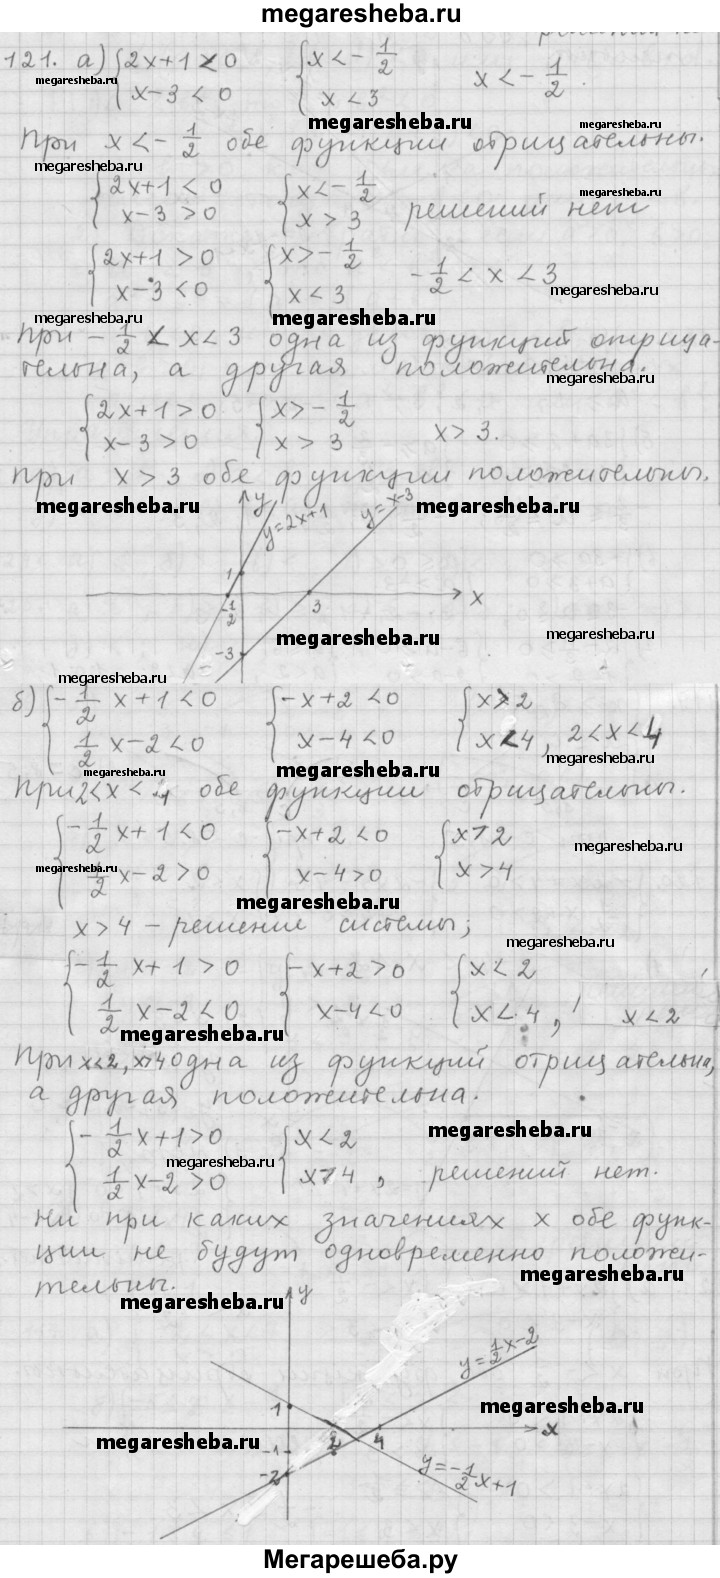 megaresheba.ru
121. а) {2x+1<0 {x<-1/2 x<-1/2.
megaresheba.ru
{x-3<0 {x<3
megaresheba.ru
megaresheba.ru
При x<-1/2 обе функции отрицательны.
megaresheba.ru
{2x+1<0 {x<-1/2
{x-3>0 {x>3 решений нет
megaresheba.ru
{2x+1>0 {x>-1/2 -1/2<x<3
{x-3<0 {x<3
megaresheba.ru
megaresheba.ru megaresheba.ru
При -1/2<x<3 одна из функций отрица-
тельна, а другая положительна.
megaresheba.ru
{2x+1>0 {x>-1/2 x>3.
{x-3>0 {x>3
При x>3 обе функции положительны.
megaresheba.ru y megaresheba.ru
y=2x+1 y=x-3
1
-1/2 3 x
megaresheba.ru megaresheba.ru
-3
megaresheba.ru
б) {-1/2x+1<0 {-x+2<0 {x>2
{1/2x-2<0 {x-4<0 {x<4, 2<x<4
megaresheba.ru
megaresheba.ru
При 2<x<4 обе функции отрицательны.
{-1/2x+1<0 {-x+2<0 {x>2
megaresheba.ru
megaresheba.ru
{1/2x-2>0 {x-4>0 {x>4
megaresheba.ru
x>4 - решение системы;
megaresheba.ru
{-1/2x+1>0 {-x+2>0 {x<2
{1/2x-2<0 {x-4<0 {x<4, x<2
megaresheba.ru
При x<2, x>4 одна из функций отрицательна,
а другая положительна.
{-1/2x+1>0 {x<2
megaresheba.ru
megaresheba.ru
{1/2x-2>0 {x>4, решений нет.
Ни при каких значениях x обе функ-
ции не будут одновременно положи-
тельны.
megaresheba.ru
megaresheba.ru y
y=1/2x-2
1 megaresheba.ru
megaresheba.ru 2 4 x
-1
-2 y=-1/2x+1
Мегарешеба.ру